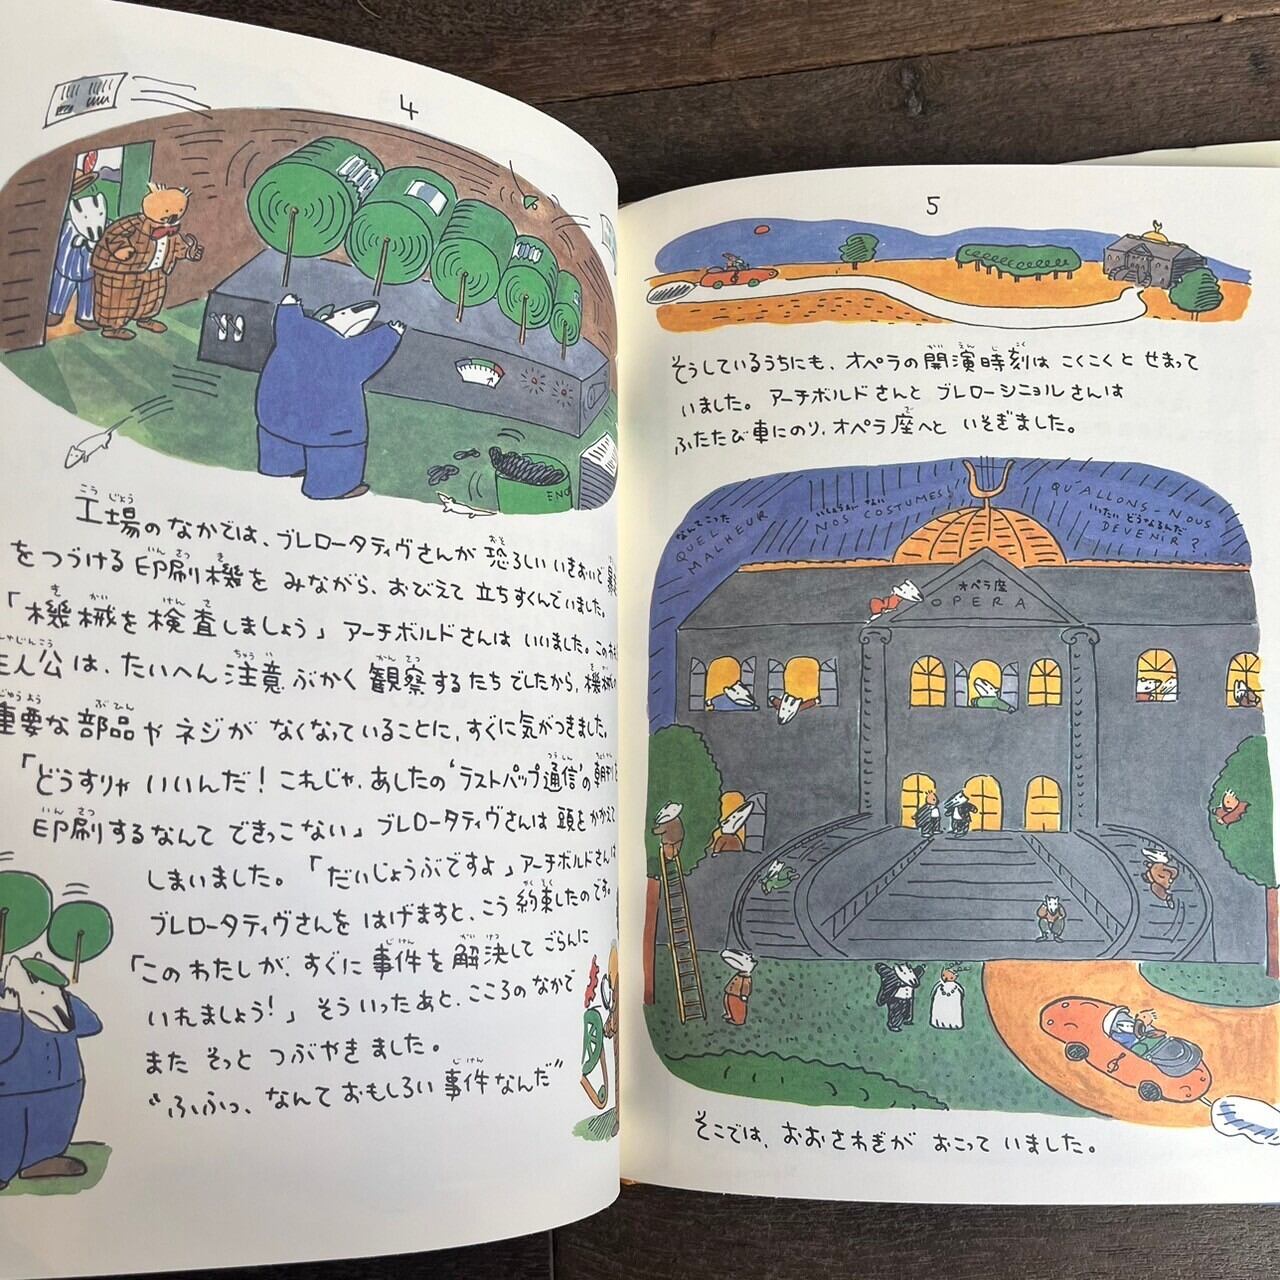 4
END
工場のなかでは、ブレロータティヴさんが 恐ろしい いきおいで
をつづける 印刷機を みながら、おびえて 立ちすくんでいました。
「機械を検査しましょう」 アーチボルドさんは いいました。この
人公は、たいへん 注意 ぶかく 観察するたちでしたから、機械の
重要な 部品や ネジが なくなっていることに、すぐに気がつきました。
「どうすりゃ いいんだ! これじゃ、あしたの‘ラストパップ通信’の朝刊を
印刷するなんて できっこない」 ブレロータティヴさんは 頭を かかえて
しまいました。 「だいじょうぶですよ」 アーチボルドさんは
ブレロータティヴさんを はげますと、こう約束したのです。
「このわたしが、すぐに 事件を 解決して ごらんに
いれましょう!」 そういったあと、こころのなかで
また そっと つぶやきました。
“ふふっ、なんて おもしろい 事件なんだ”
5
そうしているうちにも、オペラの 開演時刻は こくこくと せまって
いました。 アーチボルドさんと ブレローシニョルさんは
ふたたび 車にのり、オペラ座へと いそぎました。
なんてこった
QUELCHEUR
MALHEUR
いしょうが ない
NOS COSTUMES!
QU'ALLONS-NOUS
いったい どうなるんだ
DEVENIR?
オペラ座
OPERA
そこでは、おおさわぎが おこって いました。